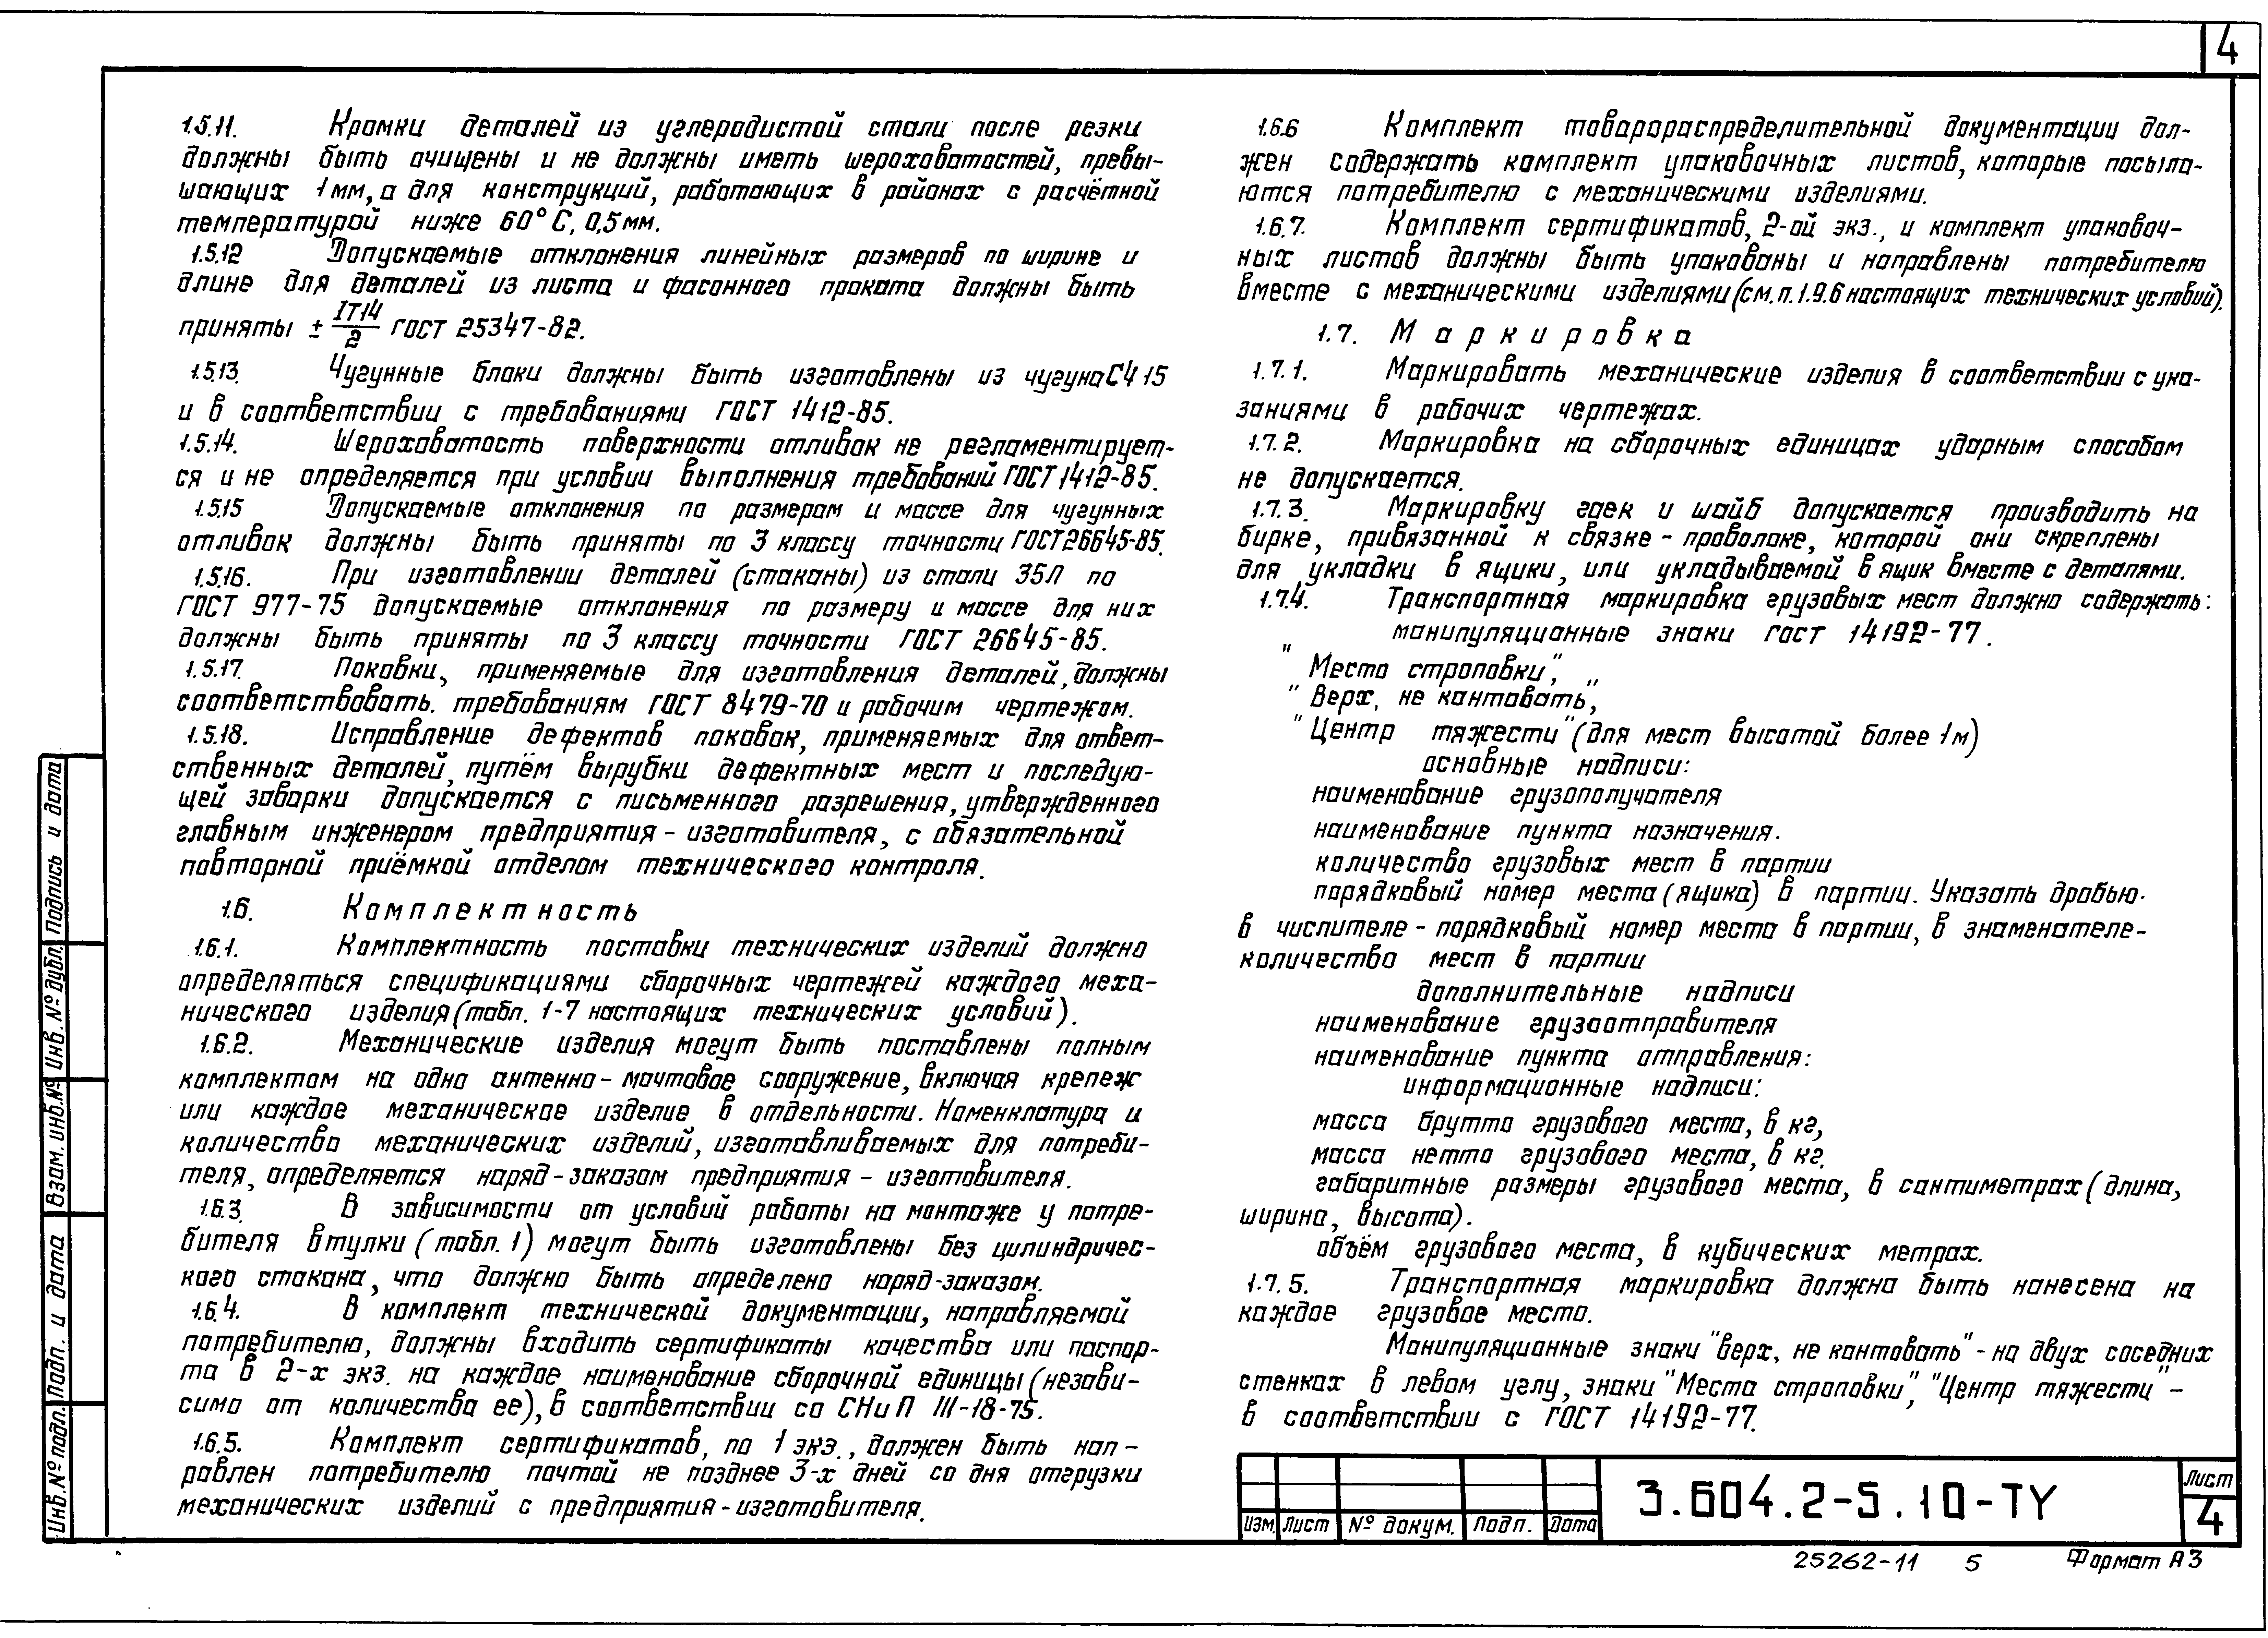 4
1.5.11. Кромки деталей из углеродистой стали после резки
должны быть очищены и не должны иметь шероховатостей, превы-
шающих 1мм, а для конструкций, работающих в районах с расчётной
температурой ниже 60°С, 0,5мм.
1.5.12 Допускаемые отклонения линейных размеров по ширине и
длине для деталей из листа и фасонного проката должны быть
приняты ± IT14/2 ГОСТ 25347-82.
1.5.13. Чугунные блоки должны быть изготовлены из чугуна СЧ 15
и в соответствии с требованиями ГОСТ 1412-85.
1.5.14. Шероховатость поверхности отливок не регламентирует-
ся и не определяется при условии выполнения требований ГОСТ 1412-85.
1.5.15 Допускаемые отклонения по размерам и массе для чугунных
отливок должны быть приняты по 3 классу точности ГОСТ 26645-85.
1.5.16. При изготовлении деталей (стаканы) из стали 35Л по
ГОСТ 977-75 допускаемые отклонения по размеру и массе для них
должны быть приняты по 3 классу точности ГОСТ 26645-85.
1.5.17. Поковки, применяемые для изготовления деталей, должны
соответствовать. требованиям ГОСТ 8479-70 и рабочим чертежом.
1.5.18. Исправление дефектов поковок, применяемых для ответ-
ственных деталей, путём вырубки дефектных мест и последую-
щей заварки допускается с письменного разрешения, утвержденного
главным инженером предприятия - изготовителя, с обязательной
повторной приёмкой отделом технического контроля.
1.6. Комплектность
1.6.1. Комплектность поставки технических изделий должно
определяться спецификациями сборочных чертежей каждого меха-
нического изделия (табл. 1-7 настоящих технических условий).
1.6.2. Механические изделия могут быть поставлены полным
комплектом на одно антенно-мачтовое сооружение, включая крепеж
или каждое механическое изделие в отдельности. Номенклатура и
количество механических изделий, изготавливаемых для потреби-
теля, определяется наряд-заказом предприятия - изготовителя.
1.6.3. В зависимости от условий работы на монтаже у потре-
бителя втулки (табл. 1) могут быть изготовлены без цилиндричес-
кого стакана, что должно быть определено наряд-заказом.
1.6.4. В комплект технической документации, направляемой
потребителю, должны входить сертификаты качества или паспор-
та в 2-х экз. на каждое наименование сборочной единицы (незави-
симо от количества ее), в соответствии со СНиП III-18-75.
1.6.5. Комплект сертификатов, по 1 экз., должен быть нап-
равлен потребителю почтой не позднее 3-х дней со дня отгрузки
механических изделий с предприятия-изготовителя.
1.6.6 Комплект товарораспределительной документации дол-
жен содержать комплект упаковочных листов, которые посыла-
ются потребителю с механическими изделиями.
1.6.7. Комплект сертификатов, 2-ой экз., и комплект упаковоч-
ных листов должны быть упакованы и направлены потребителю
вместе с механическими изделиями (см. п. 1.9.6 настоящих технических условий).
1.7. Маркировка
1.7.1. Маркировать механические изделия в соответствии с ука-
заниями в рабочих чертежах.
1.7.2. Маркировка на сборочных единицах ударным способом
не допускается.
1.7.3. Маркировку гаек и шайб допускается производить на
бирке, привязанной к связке - проволоке, которой они скреплены
для укладки в ящики, или укладываемой в ящик вместе с деталями.
1.7.4. Транспортная маркировка грузовых мест должно содержать:
манипуляционные знаки ГОСТ 14192-77.
"Место строповки",
"Верх, не кантовать",
"Центр тяжести" (для мест высотой более 1м)
основные надписи:
наименование грузополучателя
наименование пункта назначения.
количество грузовых мест в партии
порядковый номер места (ящика) в партии. Указать дробью.
в числителе - порядковый номер места в партии, в знаменателе-
количество мест в партии
дополнительные надписи
наименование грузоотправителя
наименование пункта отправления:
информационные надписи:
масса брутто грузового места, в кг,
масса нетто грузового места, в кг.
габаритные размеры грузового места, в сантиметрах (длина,
ширина, высота).
объём грузового места, в кубических метрах.
1.7.5. Транспортная маркировка должна быть нанесена на
каждое грузовое место.
Манипуляционные знаки "верх, не кантовать" - на двух соседних
стенках в левом углу, знаки "Места строповки", "Центр тяжести" -
в соответствии с ГОСТ 14192-77.
Инв. № подл. Подп. и дата Взам. инв. № Инв. № дубл. Подпись и дата
Изм. Лист № докум. Подп. Дата
3.604.2-5.10-ТУ
Лист
4
25262-11 5 Формат А3